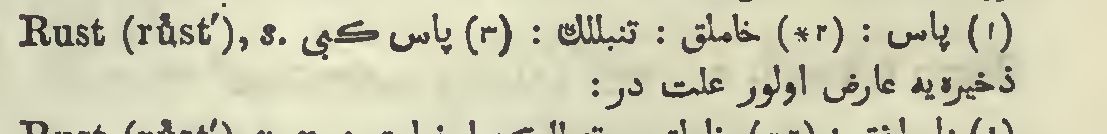 Rust (rŭst′), s. (١) پاس : (٢*) خاملق : تنبللك : (٣) پاس كبی
ذخیره‌یه عارض اولور علت در :